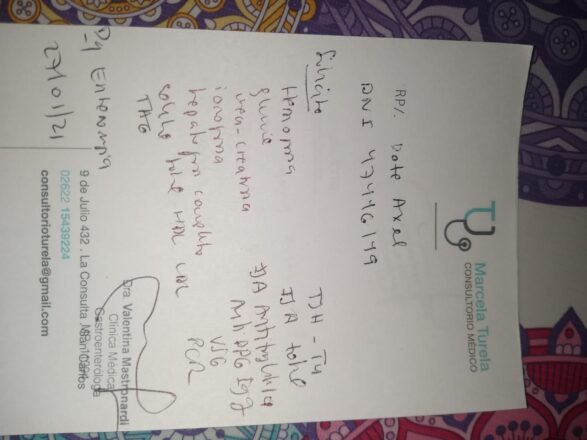 Marcela Turela
CONSULTORIO MÉDICO
RP/. Dote Axel
DNI 47446149
Solicito
Hemograma
glucemia
urea-creatinina
ionograma
hepatograma completo
colest total HDL LDL
TAG
TSH - T4
IgA total
IgA Antitransglut
Anti DPG IgG
VSG
PCR
Dg Enteropatía
27/01/21
Dra. Valentina Mastronardi
Clínica Médica
Gastroenteróloga
9 de Julio 432 . La Consulta . San Carlos
02622 15439224
consultorioturela@gmail.com